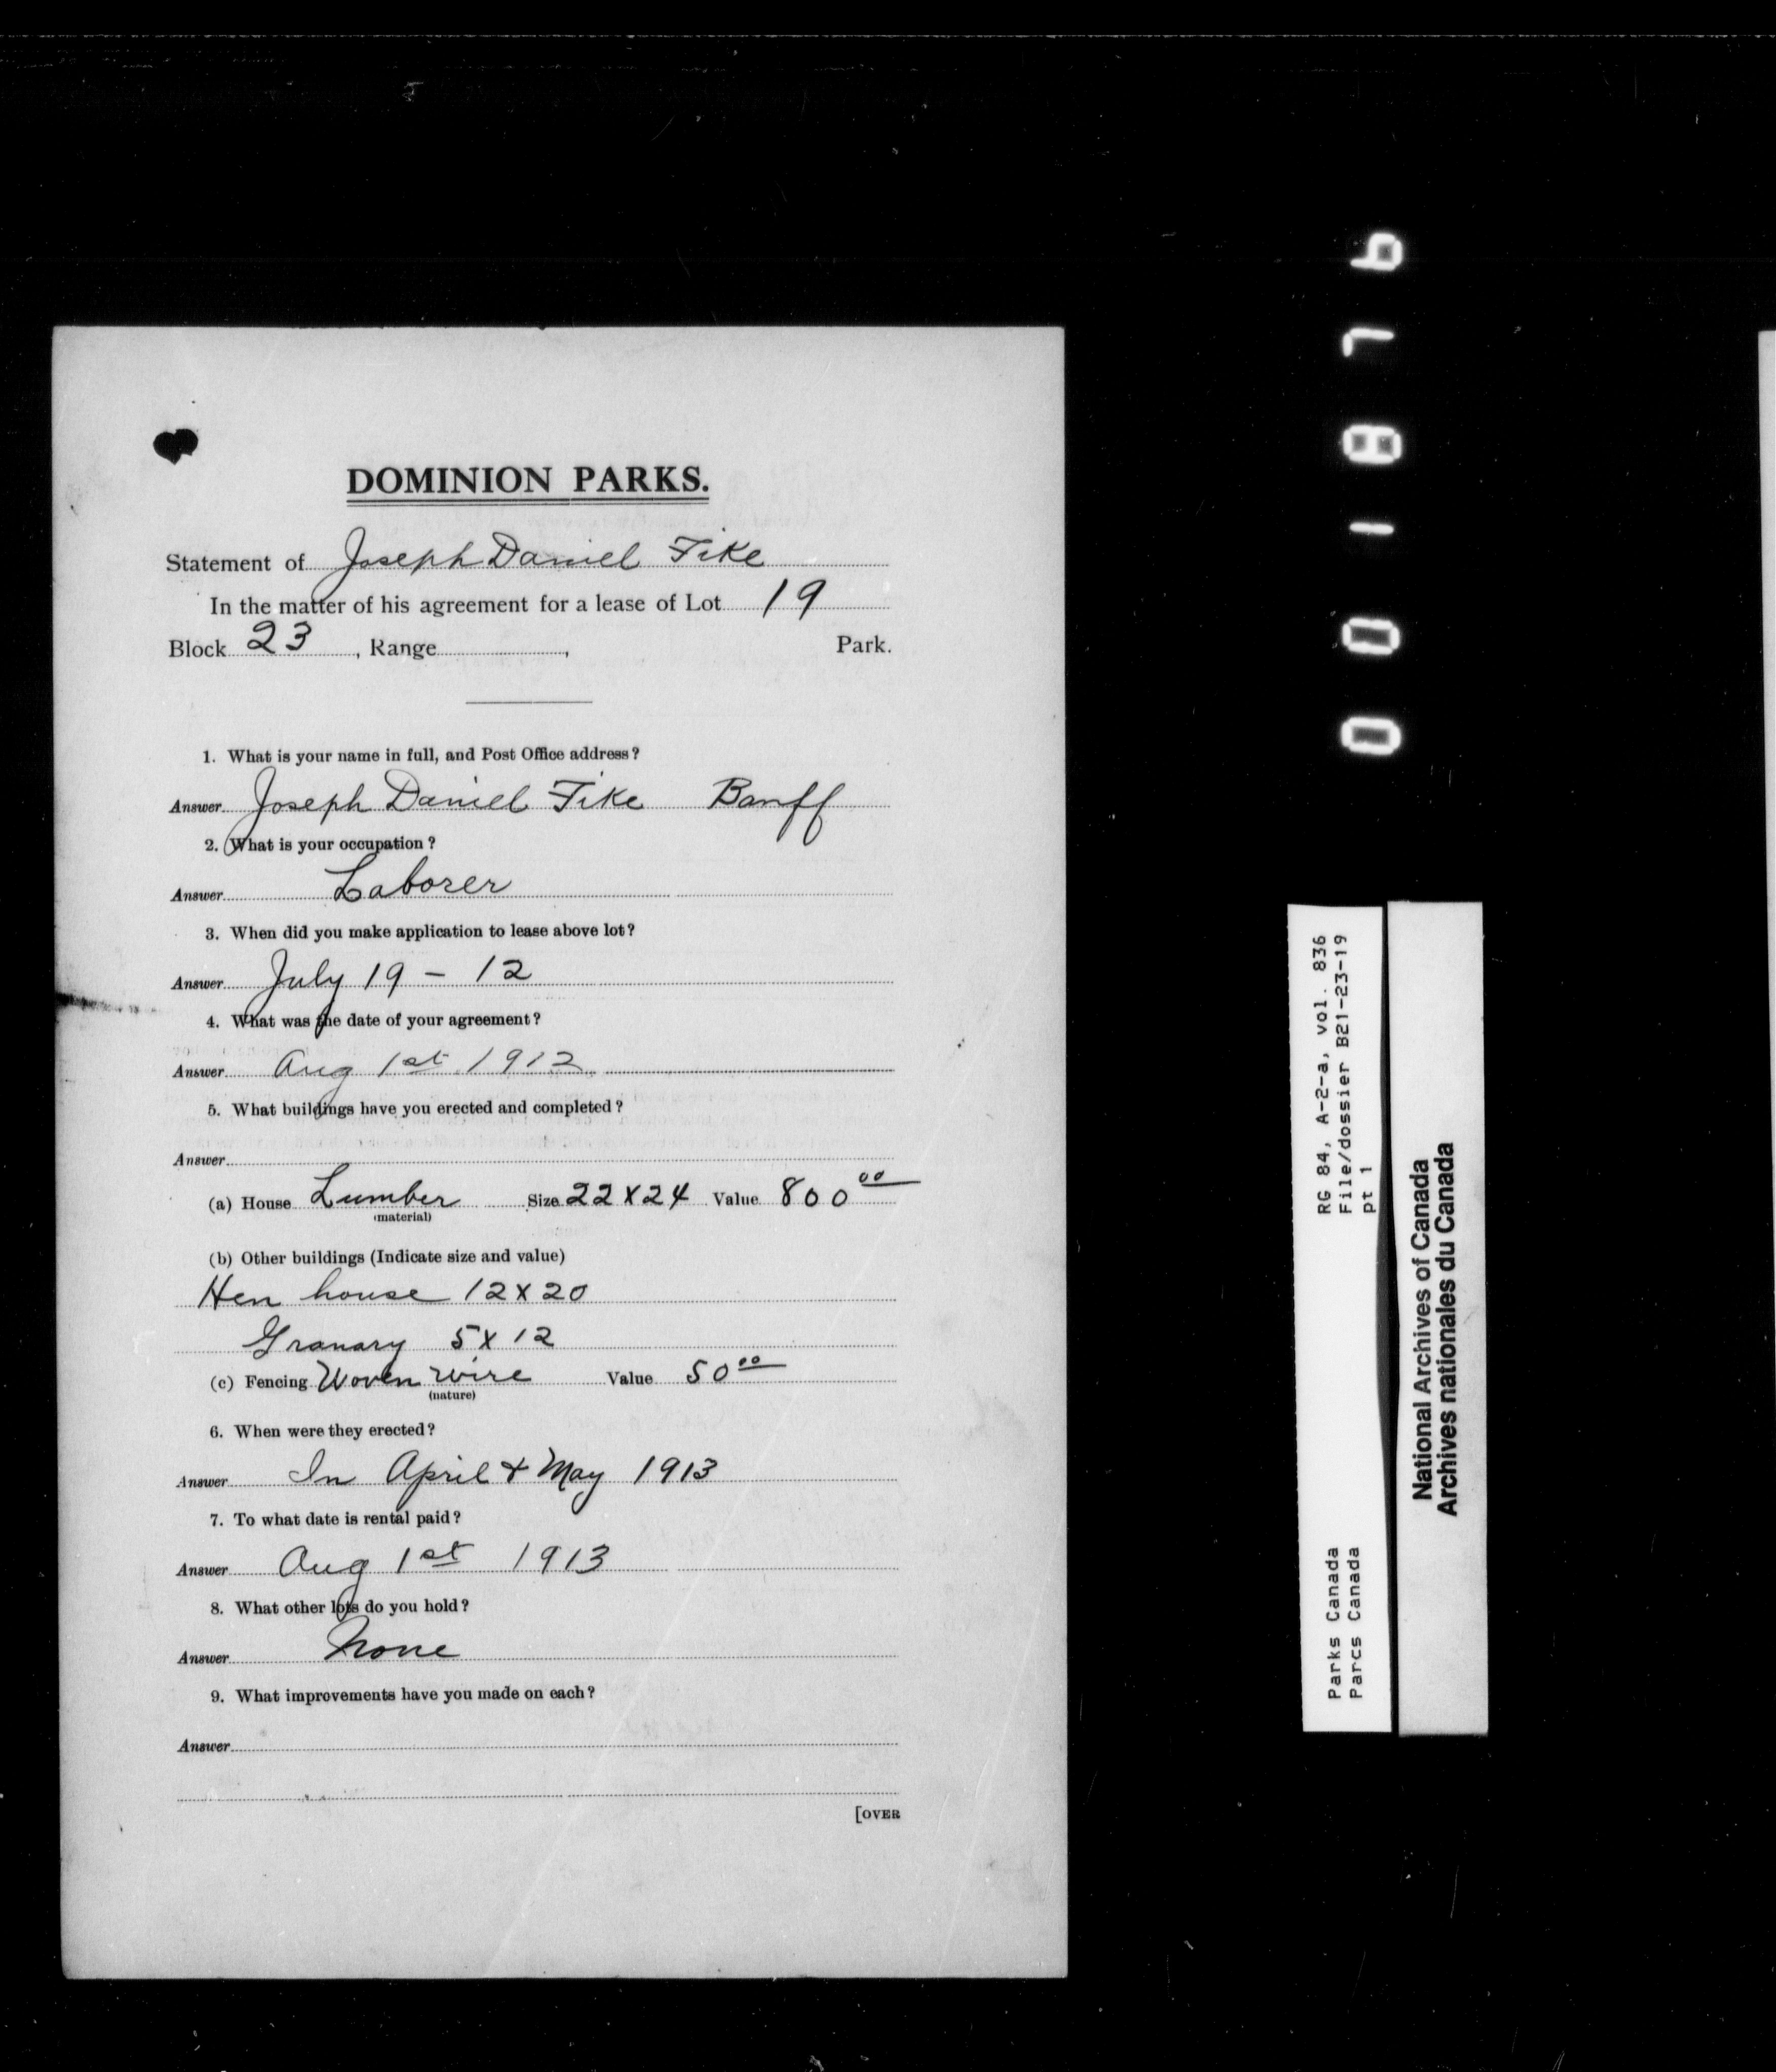 DOMINION PARKS.
Statement of Joseph Daniel Fike
In the matter of his agreement for a lease of Lot 19
Block 23, Range, Park.
1. What is your name in full, and Post Office address?
Answer Joseph Daniel Fike Banff
2. What is your occupation?
Answer Laborer
3. When did you make application to lease above lot?
Answer July 19 - 12
4. What was the date of your agreement?
Answer Aug 1st 1912
5. What buildings have you erected and completed?
Answer
(a) House Lumber Size 22 x 24 Value 800 00
(material)
(b) Other buildings (Indicate size and value)
Hen house 12 x 20
Granary 5 x 12
(c) Fencing Woven wire Value 50 00
(nature)
6. When were they erected?
Answer In April & May 1913
7. To what date is rental paid?
Answer Aug 1st 1913
8. What other lots do you hold?
Answer None
9. What improvements have you made on each?
Answer
[OVER
001879
RG 84, A-2-a, vol. 836
File/dossier B21-23-19
pt 1
Parks Canada
Parcs Canada
National Archives of Canada
Archives nationales du Canada